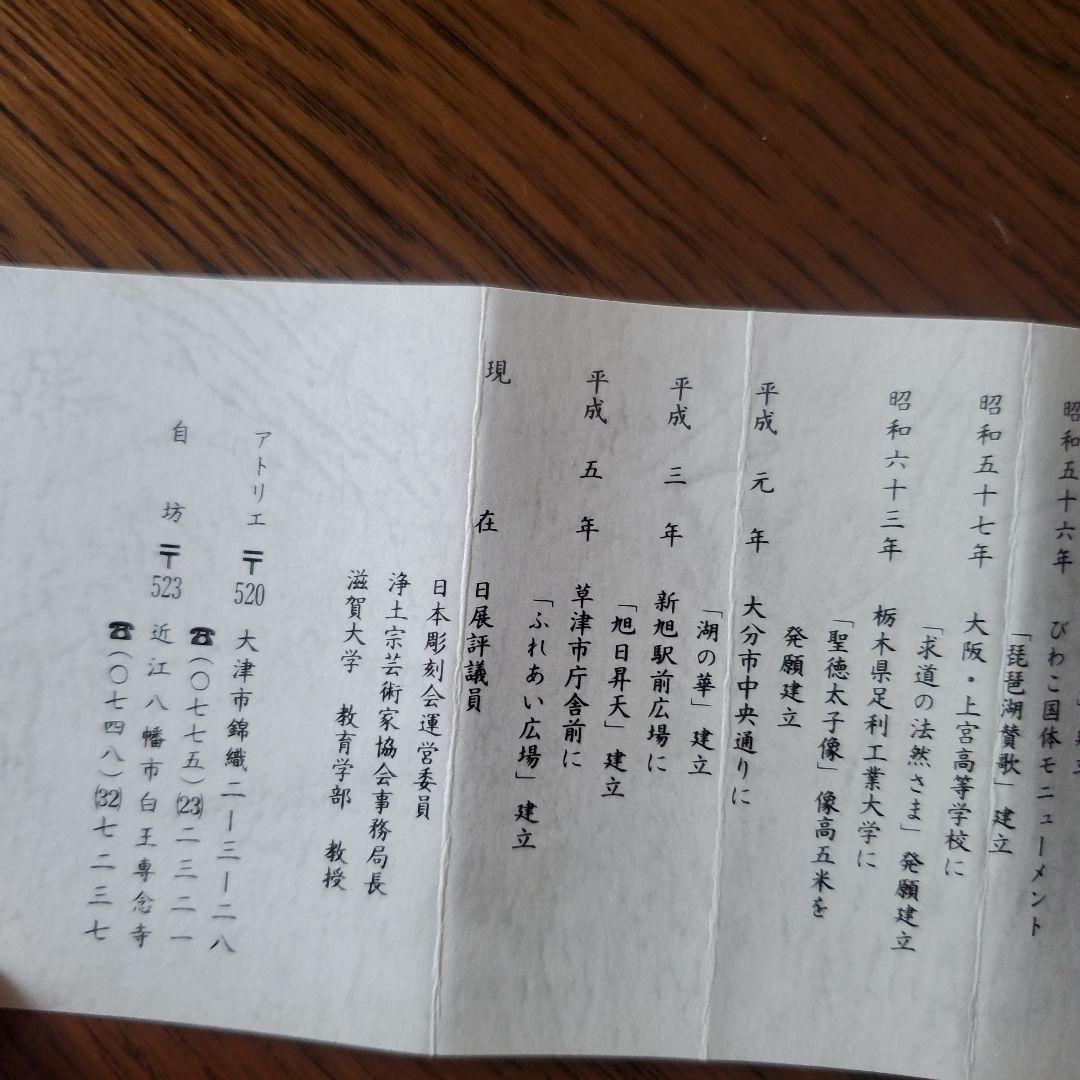 」建立
昭和五十六年 びわこ国体モニューメント
「琵琶湖賛歌」建立
昭和五十七年 大阪・上宮高等学校に
「求道の法然さま」発願建立
昭和六十三年 栃木県足利工業大学に
「聖徳太子像」像高五米を
発願建立
平成元年 大分市中央通りに
「湖の華」建立
平成三年 新旭駅前広場に
「旭日昇天」建立
平成五年 草津市庁舎前に
「ふれあい広場」建立
現在 日展評議員
日本彫刻会運営委員
浄土宗芸術家協会事務局長
滋賀大学 教育学部 教授
アトリエ 〒520 大津市錦織二ー三ー二八
☎(〇七七五)(23)二三二一
自坊 〒523 近江八幡市白王専念寺
☎(〇七四八)(32)七二三七